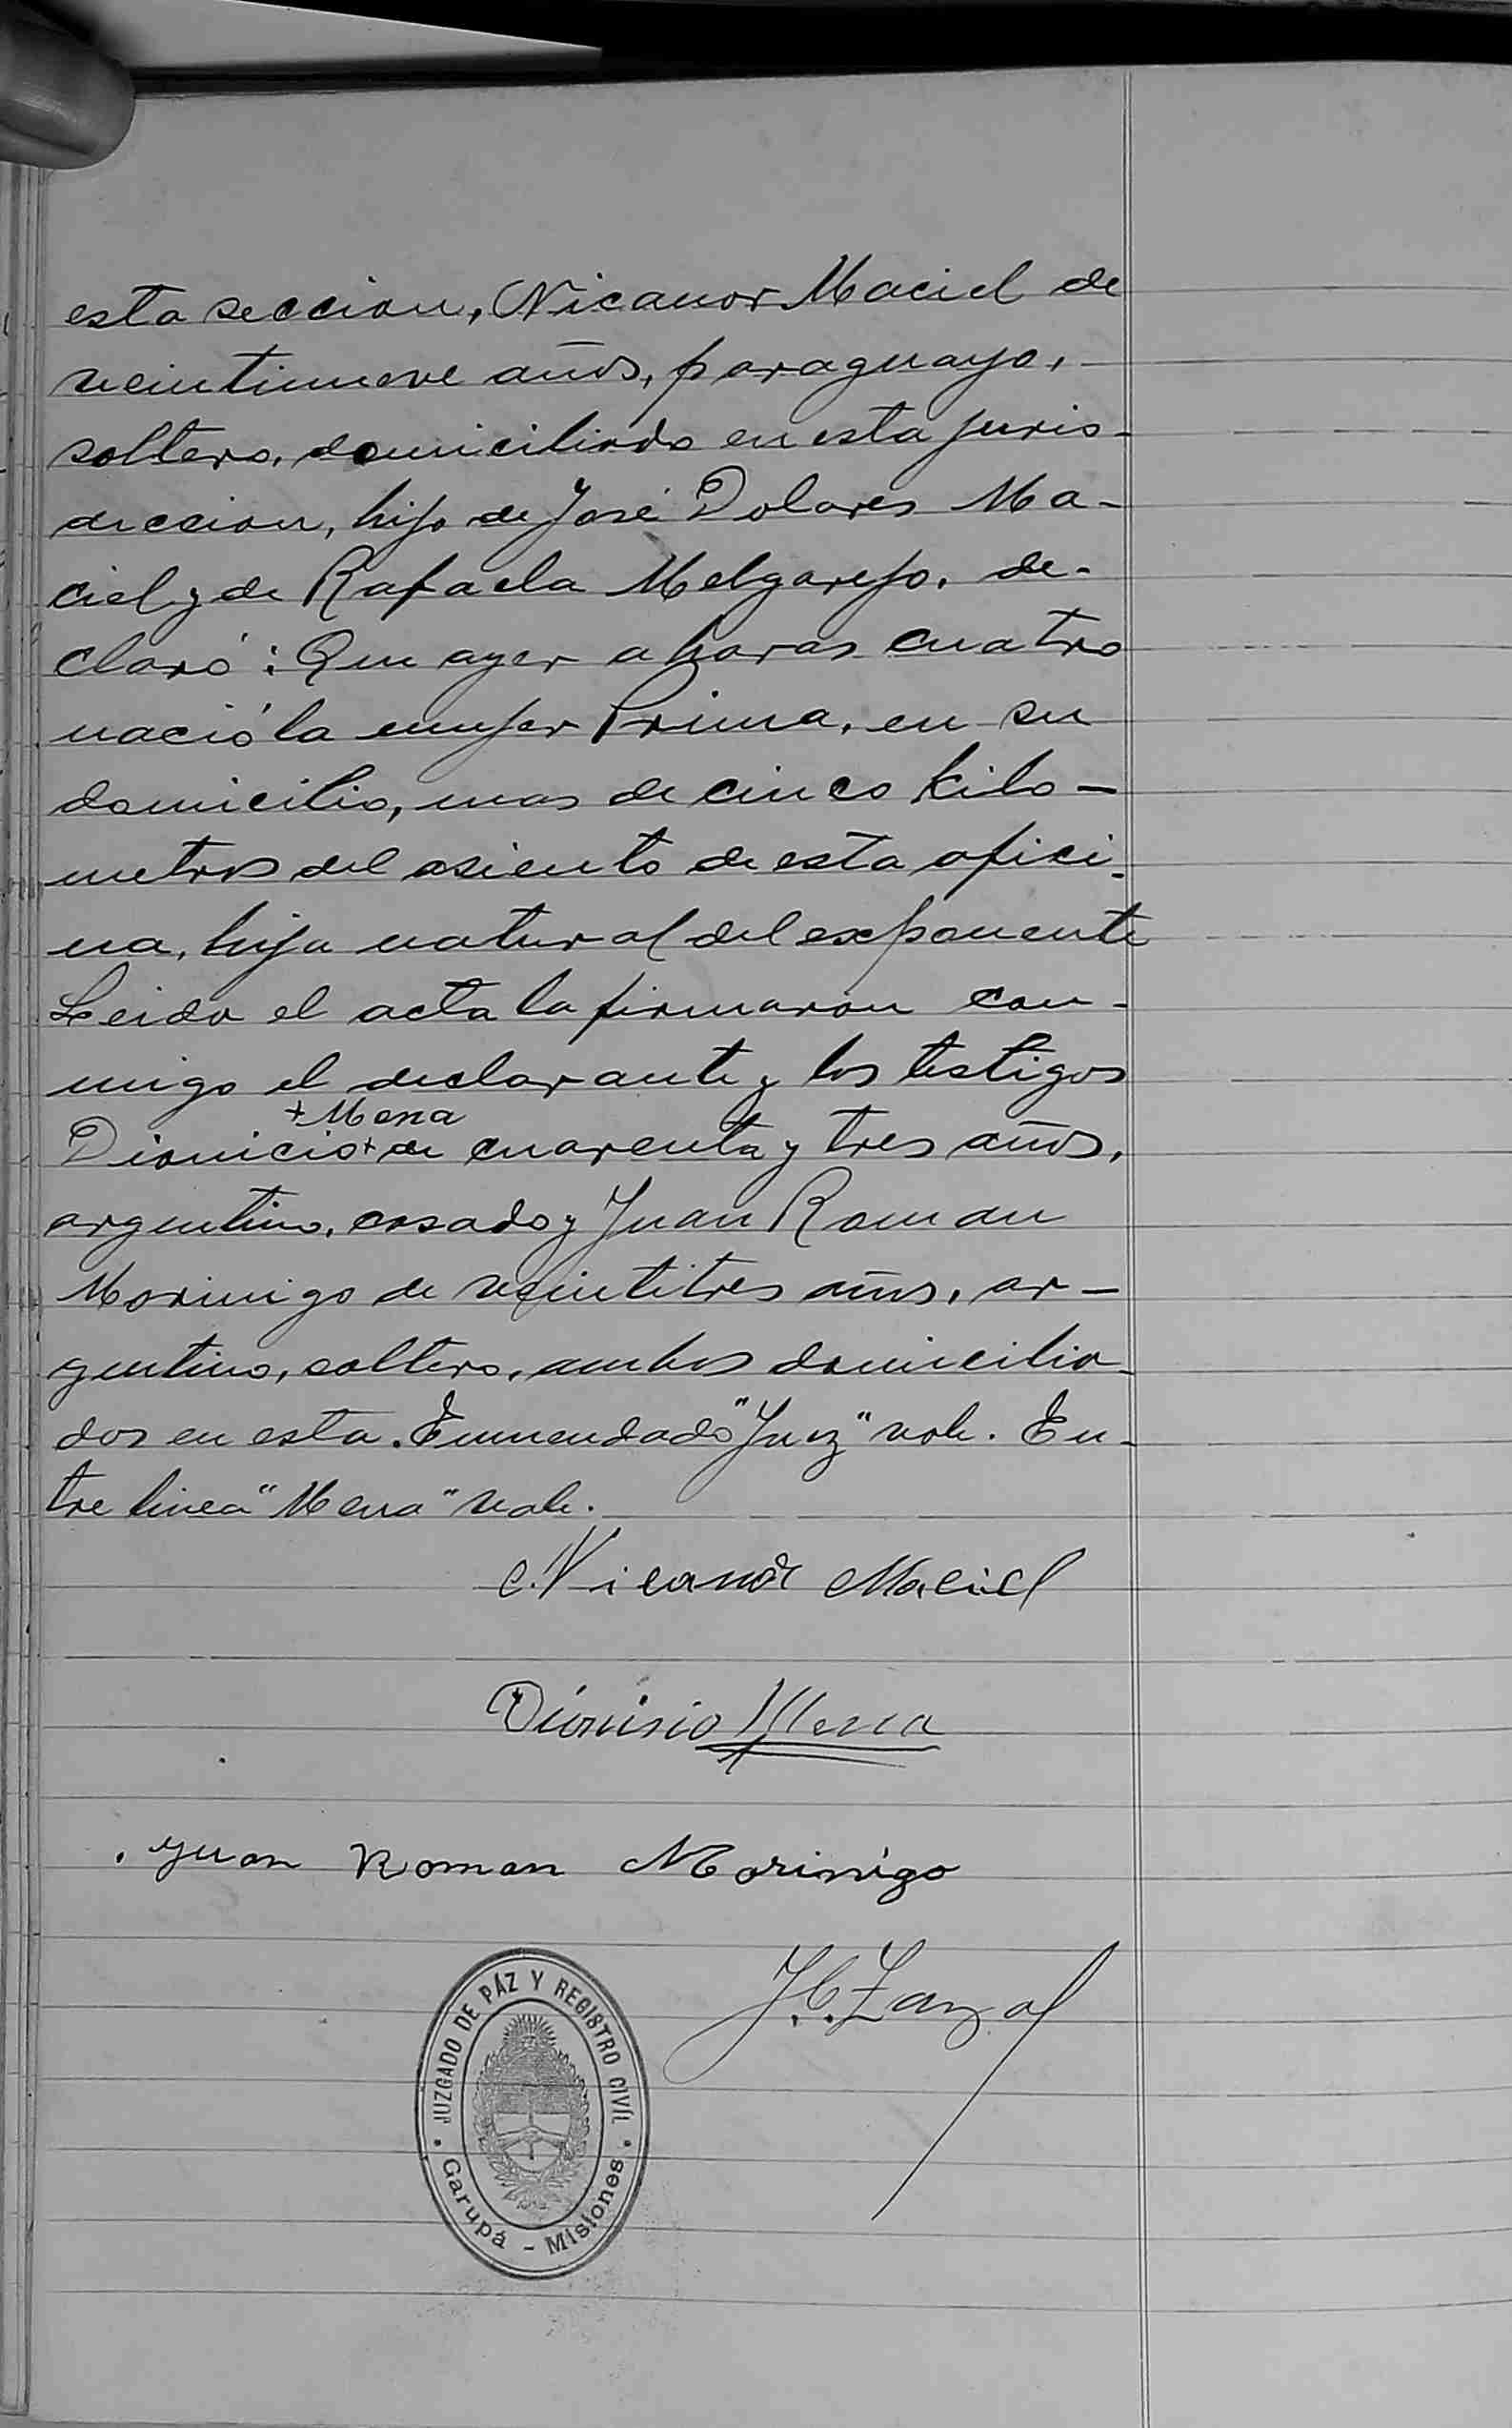 esta seccion, Nicanor Maciel de
veintinueve años, paraguayo,
soltero, domiciliado en esta juris-
diccion, hijo de José Dolores Ma-
ciel y de Rafaela Melgarejo, de-
claró: Que ayer a horas cuatro
nació la mujer Prima, en su
domicilio, mas de cinco kilo-
metros del asiento de esta ofici-
na, hija natural del exponente
Leida el acta la firmaron con-
migo el declarante y los testigos
+ Mena
Dionicio + de cuarenta y tres años,
argentino, casado y Juan Roman
Morinigo de veintitres años, ar-
gentino, soltero, ambos domicilia-
dos en esta. Enmendado "Juez" vale. En-
tre linea "Mena" vale.
Nicanor Maciel
Dionisio Mena
Juan Roman Morinigo
J. C. Zarza
JUZGADO DE PÁZ Y REGISTRO CIVÍL
Garupá - Misiones